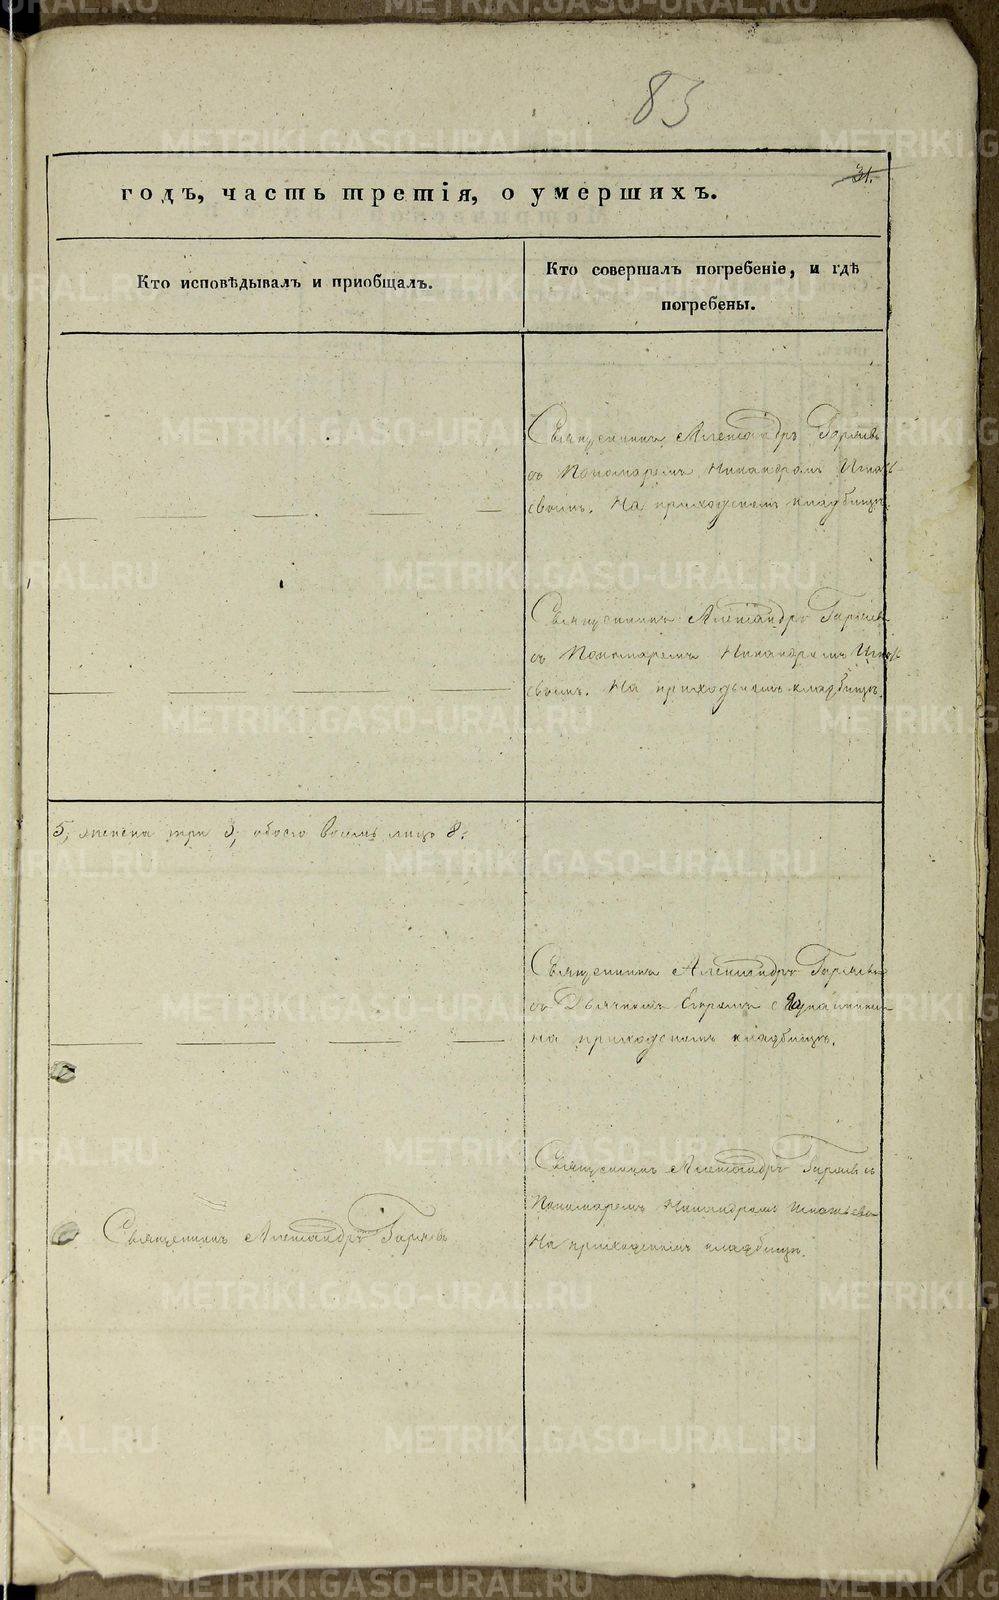 METRIKI.GASO-URAL.RU
83
31.
годъ, часть третія, о умершихъ.
Кто исповѣдывалъ и приобщалъ.
Кто совершалъ погребеніе, и гдѣ
погребены.
Священникъ Александръ Гаряевъ
съ Пономаремъ Никандромъ Игнать-
евымъ. На приходскомъ кладбищѣ.
Священникъ Александръ Гаряевъ
съ Пономаремъ Никандромъ Игнать
евымъ. На приходскомъ кладбищѣ.
5, женска три 3, обоего восемь лицъ 8.
Священникъ Александръ Гаряевъ
съ Дьячкомъ
на приходскомъ кладбищѣ.
Священникъ Александръ Гаряевъ съ
Пономаремъ Никандромъ Игнатьевы
На приходскомъ кладбищѣ.
Священникъ Александръ Гаряевъ